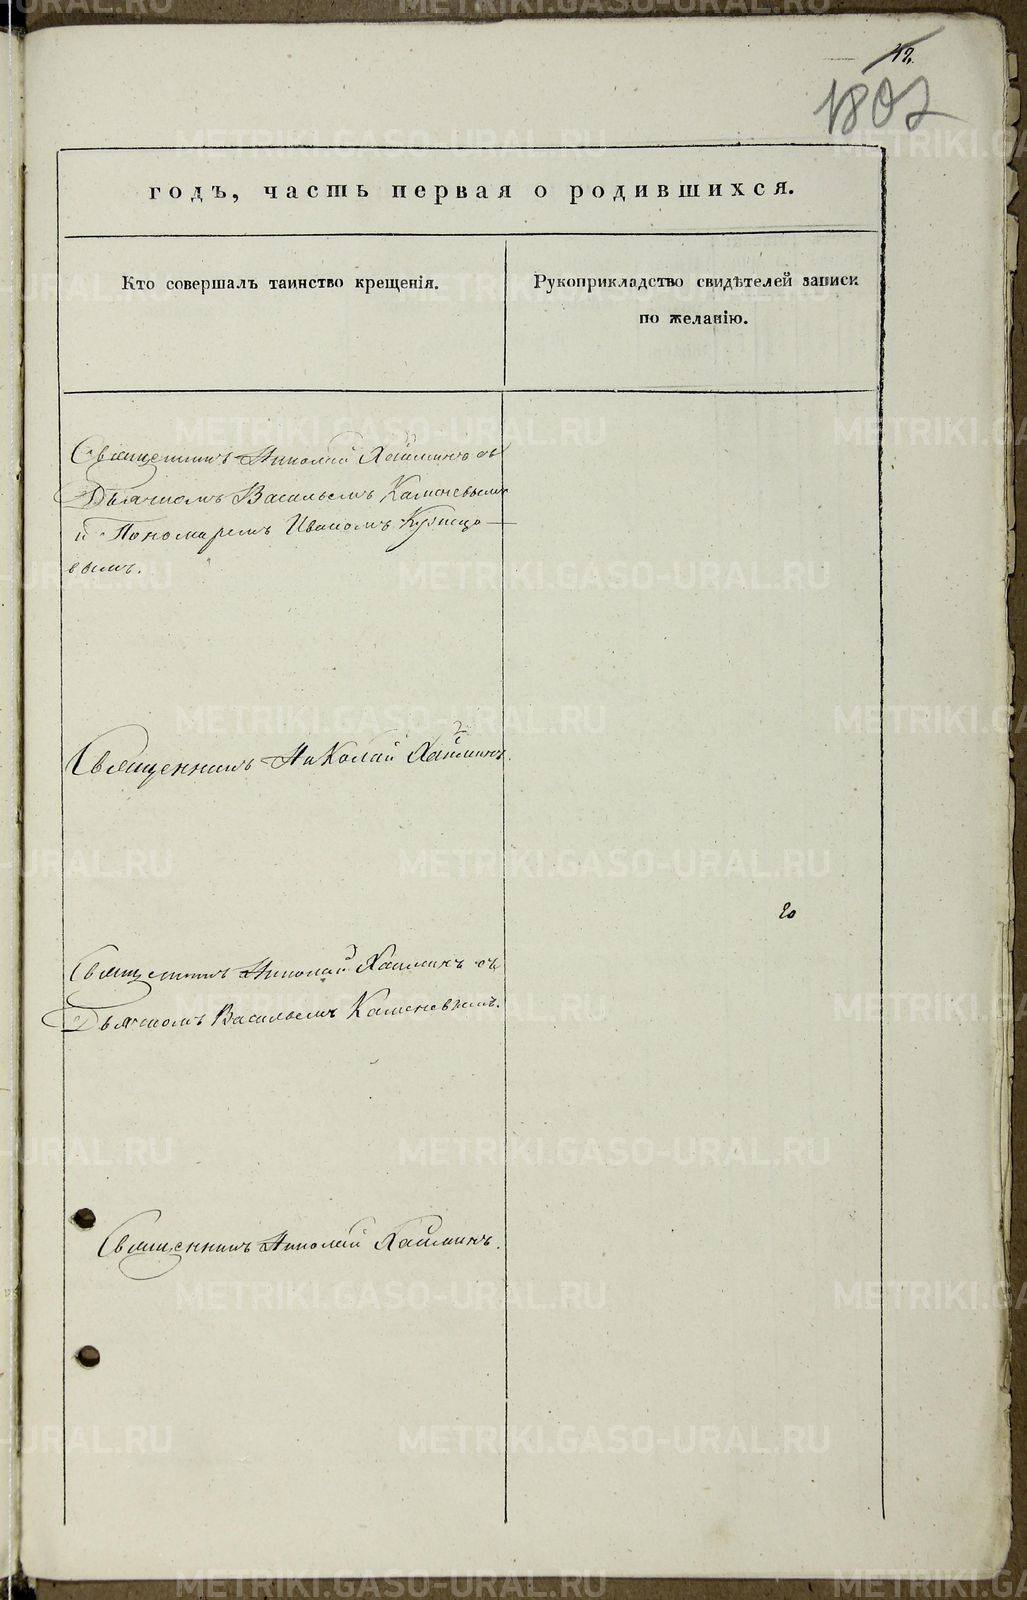 42.
1802
годъ, часть первая о родившихся.
Кто совершалъ таинство крещенія.
Рукоприкладство свидѣтелей записи
по желанію.
Священникъ Николай Хайминъ съ
Дьячкомъ Васильемъ Каменевымъ
и Пономаремъ Иваномъ Кузнецо-
вымъ.
Священникъ Николай Хайминъ.
Священникъ Николай Хайминъ съ
Дьячкомъ Васильемъ Каменевымъ.
Священникъ Николай Хайминъ.
METRIKI.GASO-URAL.RU